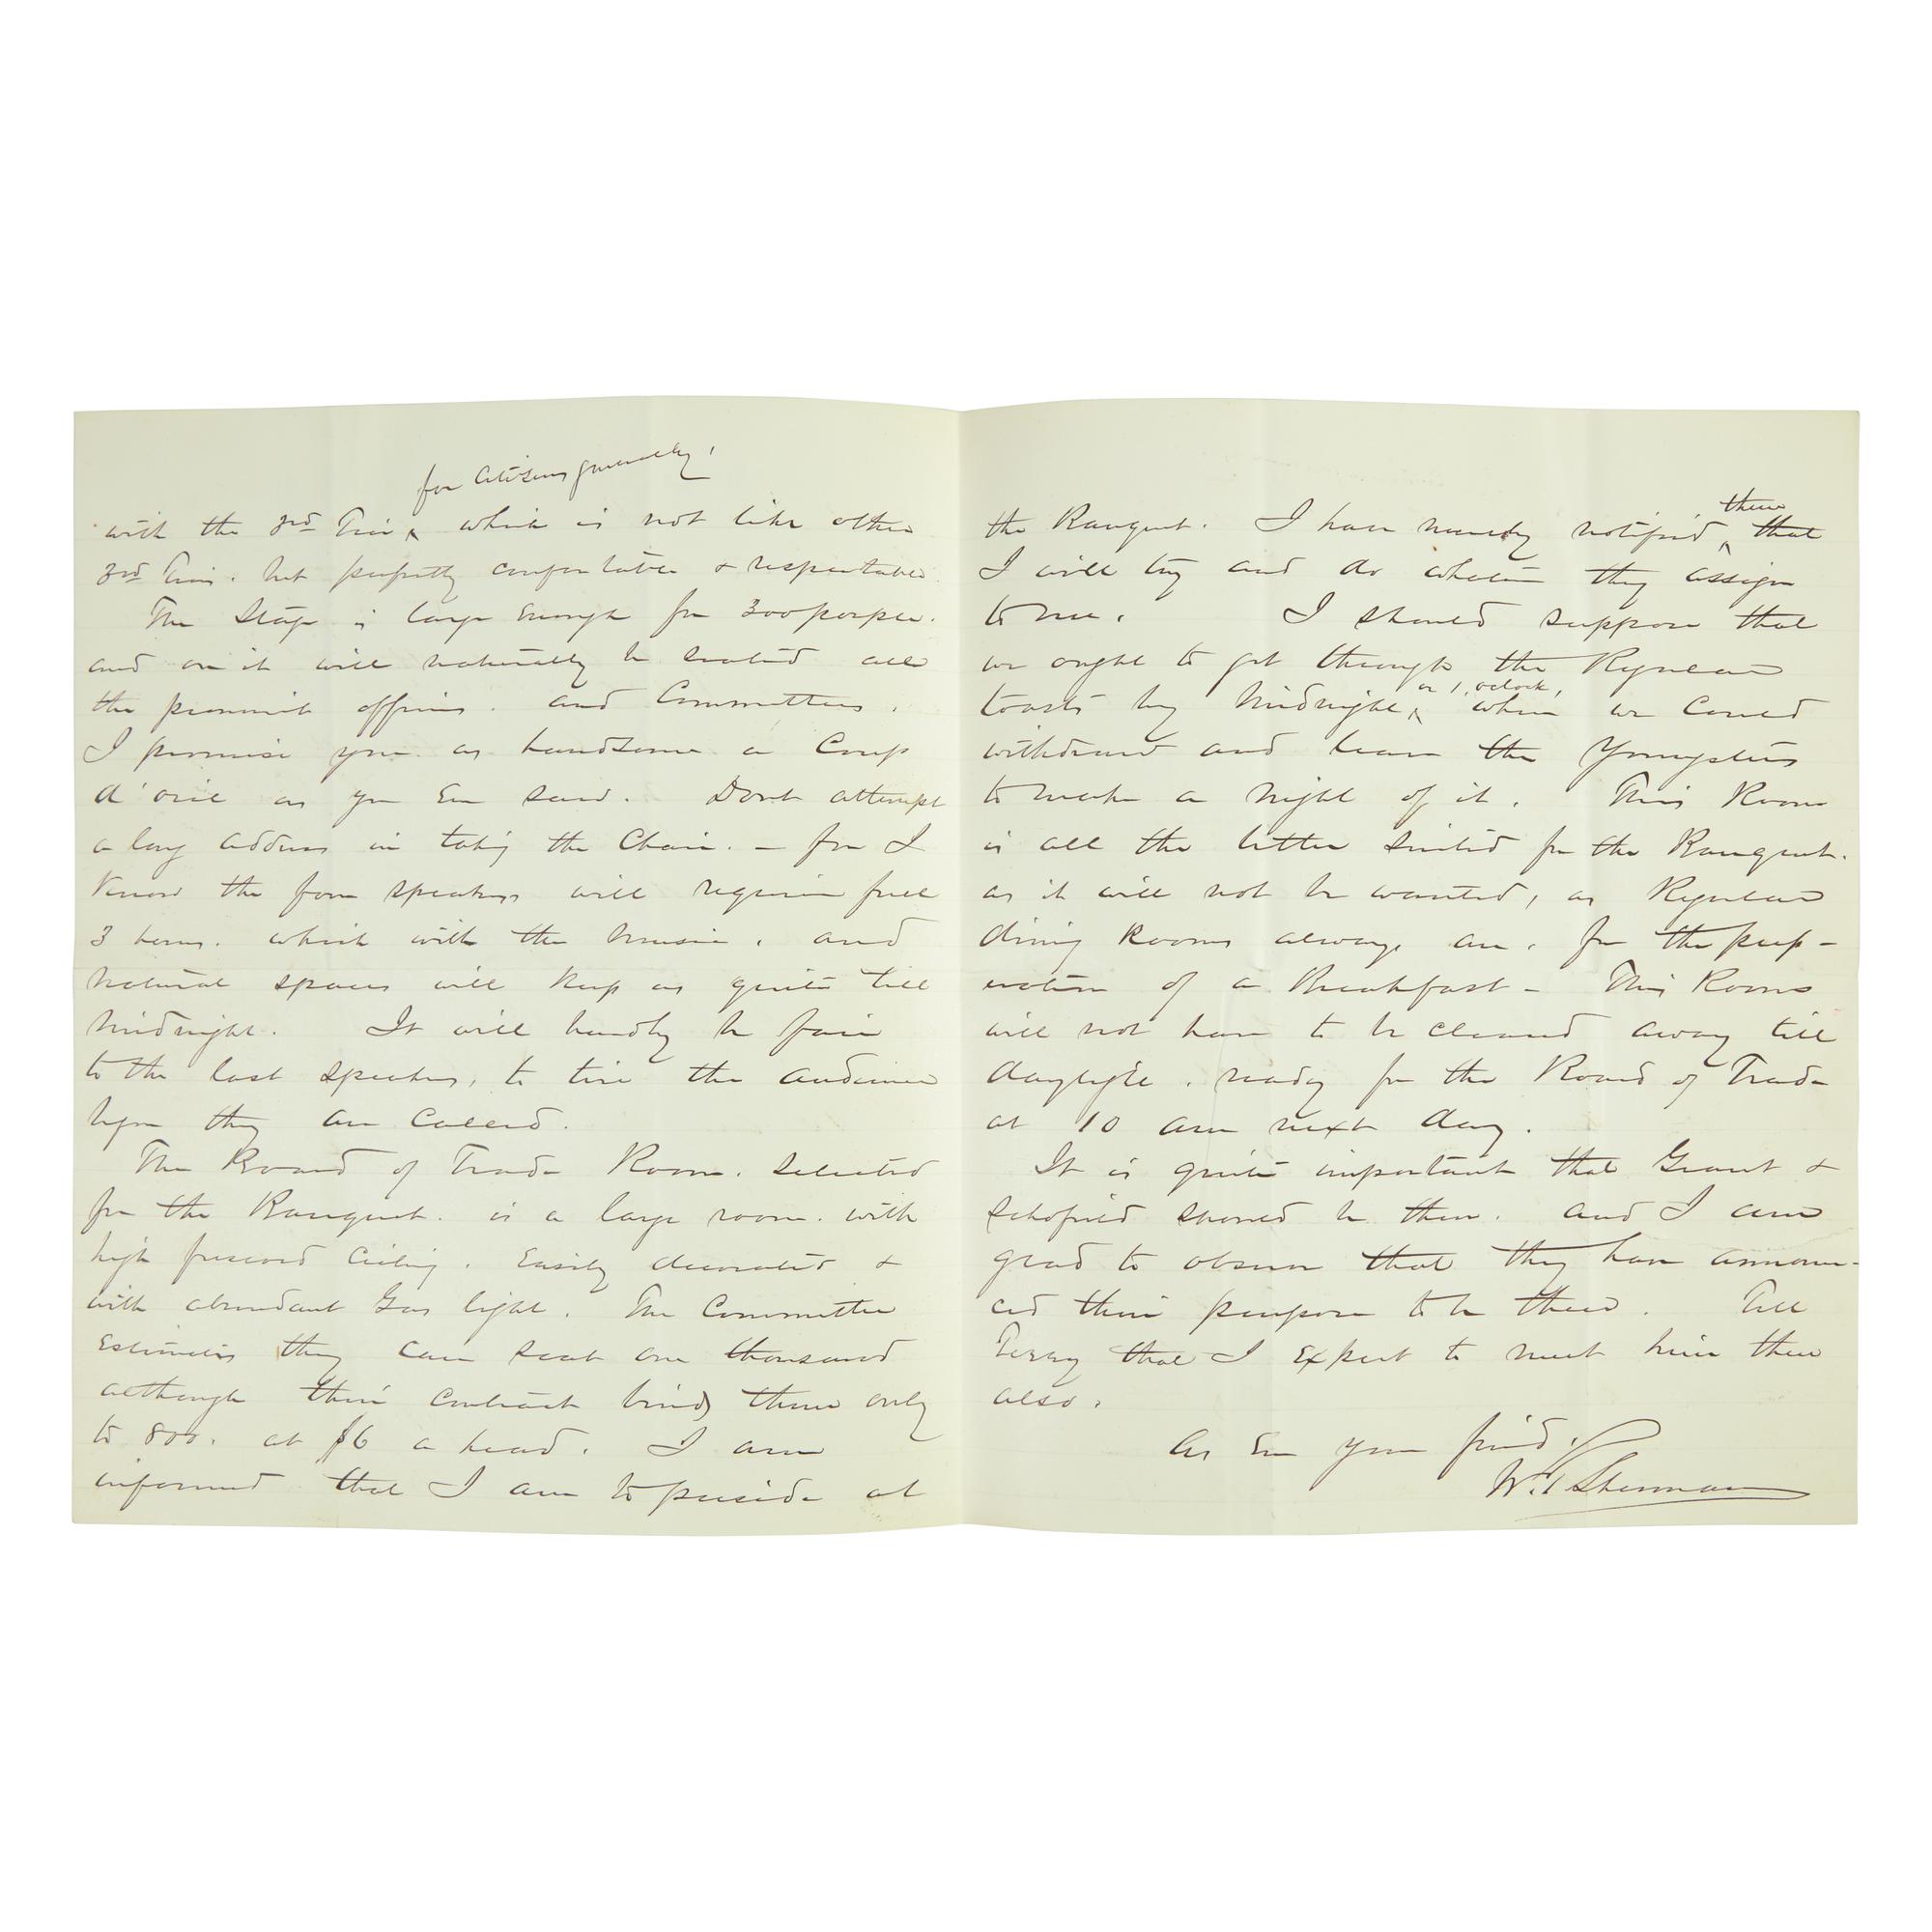 for Citizens generally,
with the 3rd Tier, which is not like other
3rd Tiers. but perfectly comfortable & respectable.
The Stage is large enough for 300 people.
and on it will naturally be seated all
the prominent officers. and Committees.
I promise you as handsome a Coup
d'oeil as you Ever saw. Dont attempt
a long address in taking the Chair. – for I
Know the four speakers will require full
3 hours. which with the music, and
natural spaces will Keep us quite till
Midnight. It will hardly be fair
to the last speakers, to tire the audience
before they are Called.
The Board of Trade Room. Selected
for the Banquet. is a large room. with
high frescoed Ceiling. Easily decorated &
with abundant Gas light. The Committee
Estimates they can seat one thousand
although their contract binds them only
to 800. at $6 a head. I am
informed that I am to preside at
the Banquet. I have merely notified them that
I will try and do whatever they assign
to me. I should suppose that
we ought to get through the Regular
toasts by Midnight, or 1, oclock, when we could
withdraw and leave the Youngsters
to make a night of it. This Room
is all the better suited for the Banquet.
as it will not be wanted, as Regular
dining Rooms always are. for the prep-
eration of a Breakfast – This Room
will not have to be cleared away till
daylight. ready for the Board of Trade
at 10 am next day.
It is quite important that Grant &
Schofield should be there. and I am
glad to observe that they have announ-
ced their purpose to be there. Tell
Terry that I Expect to meet him there
also.
As Ever your friend,
W. T. Sherman